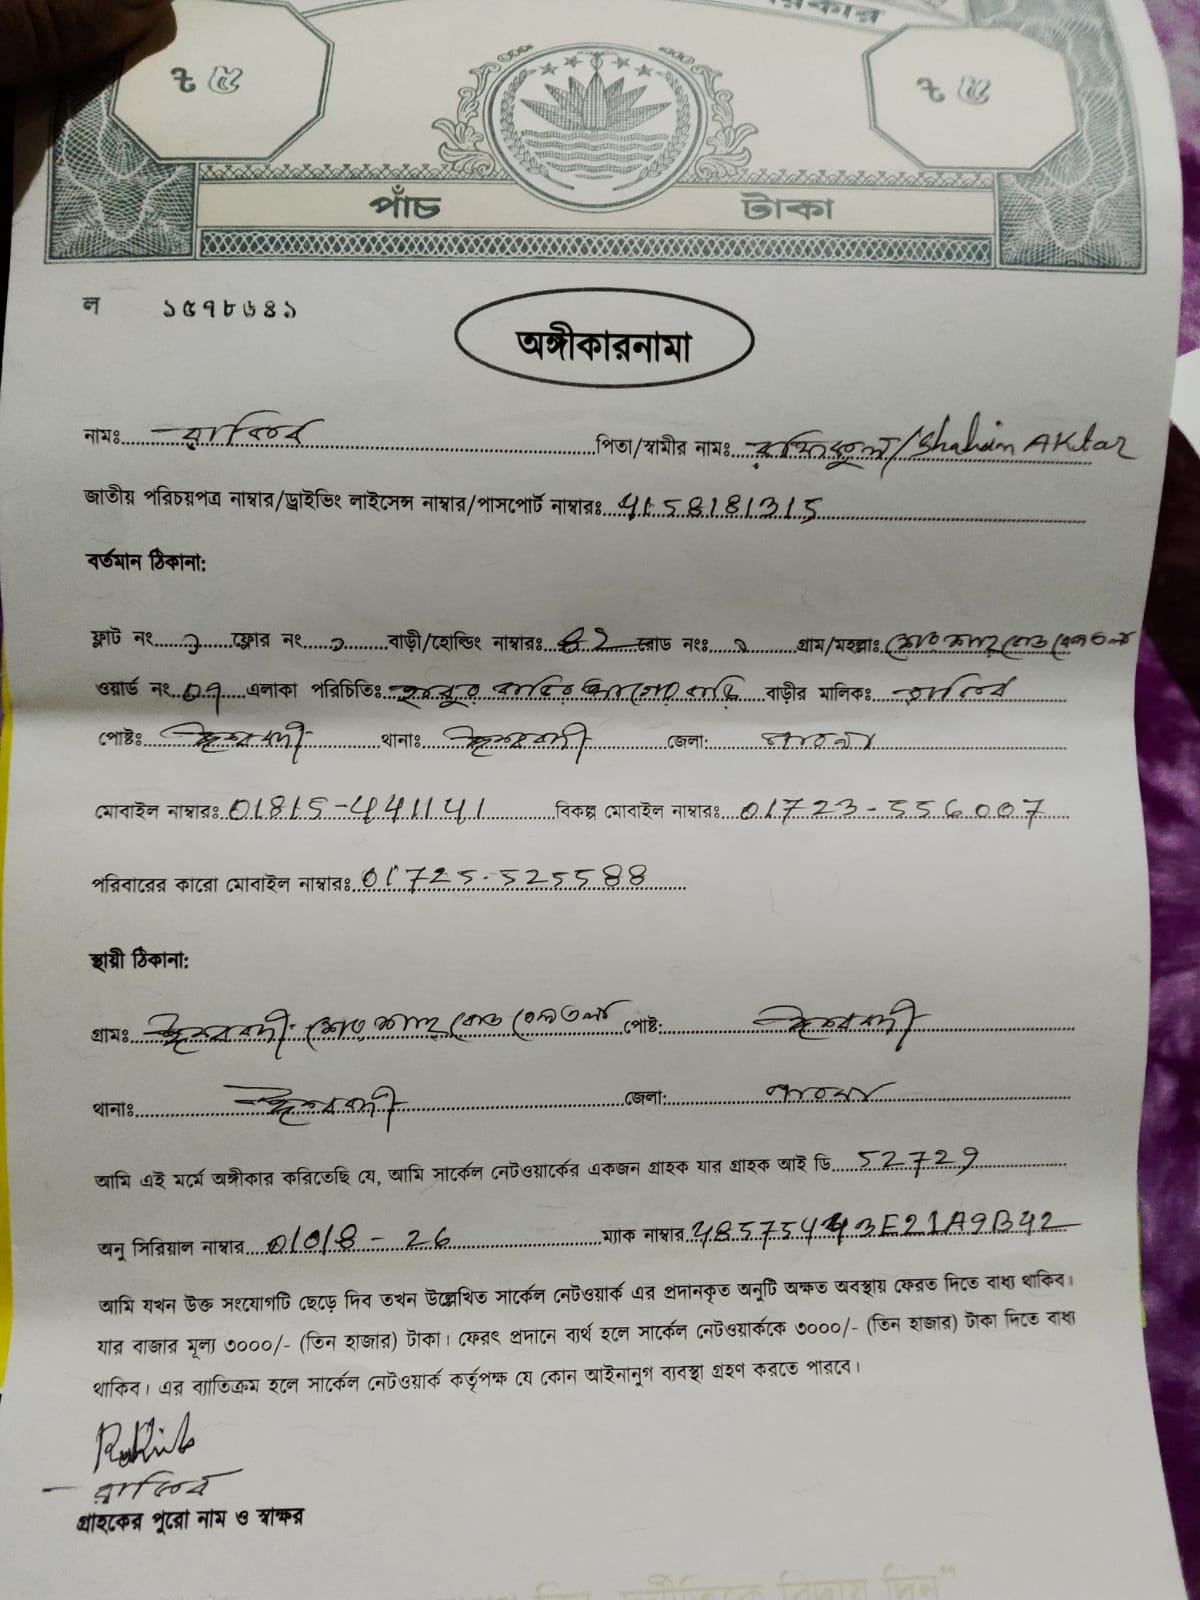 রকার
৳ ৫
৳ ৫
পাঁচ টাকা
ল ১৫৭৮৬৪১
অঙ্গীকারনামা
নামঃ রাকিব পিতা/স্বামীর নামঃ রফিকুল/Shahin AKtar
জাতীয় পরিচয়পত্র নাম্বার/ড্রাইভিং লাইসেন্স নাম্বার/পাসপোর্ট নাম্বারঃ 4158181315
বর্তমান ঠিকানা:
ফ্লাট নং ২ ফ্লোর নং ১ বাড়ী/হোল্ডিং নাম্বারঃ রোড নংঃ ১ গ্রাম/মহল্লাঃ শের শাহ রোড বেলতলা
ওয়ার্ড নং 07 এলাকা পরিচিতিঃ বাড়ি বাড়ীর মালিকঃ রাকিব
পোষ্টঃ ঈশ্বরদী থানাঃ ঈশ্বরদী জেলা: পাবনা
মোবাইল নাম্বারঃ 01815-441141 বিকল্প মোবাইল নাম্বারঃ 01723-556007
পরিবারের কারো মোবাইল নাম্বারঃ 01725-525588
স্থায়ী ঠিকানা:
গ্রামঃ ঈশ্বরদী শের শাহ রোড বেলতলা পোষ্ট: ঈশ্বরদী
থানাঃ ঈশ্বরদী জেলা: পাবনা
আমি এই মর্মে অঙ্গীকার করিতেছি যে, আমি সার্কেল নেটওয়ার্কের একজন গ্রাহক যার গ্রাহক আই ডি 52729
অনু সিরিয়াল নাম্বার 01018-26 ম্যাক নাম্বার
আমি যখন উক্ত সংযোগটি ছেড়ে দিব তখন উল্লেখিত সার্কেল নেটওয়ার্ক এর প্রদানকৃত অনুটি অক্ষত অবস্থায় ফেরত দিতে বাধ্য থাকিব।
যার বাজার মূল্য ৩০০০/- (তিন হাজার) টাকা। ফেরৎ প্রদানে ব্যর্থ হলে সার্কেল নেটওয়ার্ককে ৩০০০/- (তিন হাজার) টাকা দিতে বাধ্য
থাকিব। এর ব্যাতিক্রম হলে সার্কেল নেটওয়ার্ক কর্তৃপক্ষ যে কোন আইনানুগ ব্যবস্থা গ্রহণ করতে পারবে।
Rakib
রাকিব
গ্রাহকের পুরো নাম ও স্বাক্ষর
দিন, দুর্নীতিকে বিদায় দিন"